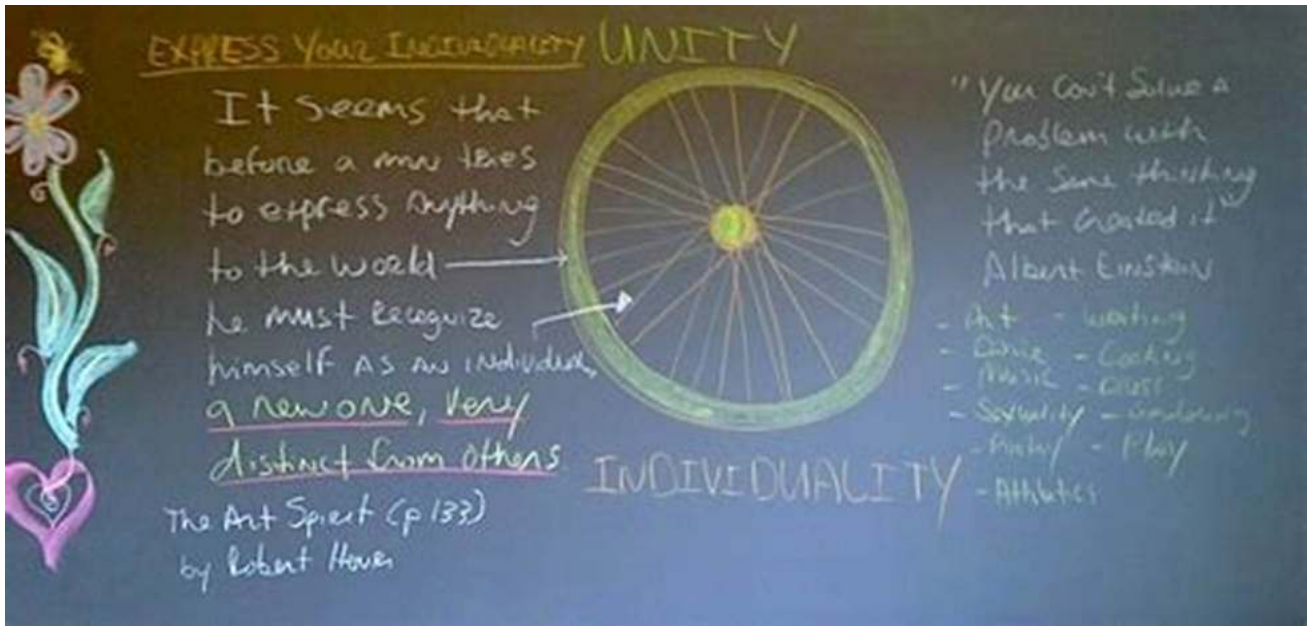 EXPRESS YOUR INDIVIDUALITY
It seems that
before a man tries
to express Anything
to the world
he must Recognize
himself AS AN INdividual,
a new one, Very
distinct from others
The Art Spirit (p 133)
by Robert Henri
UNITY
INDIVIDUALITY
"You Can't Solve a
Problem with
the Same thinking
that Created it"
Albert Einstein
- Art - Writing
- Dance - Cooking
- Music - Dress
- Sexuality - Gardening
- Poetry - Play
- Athletics